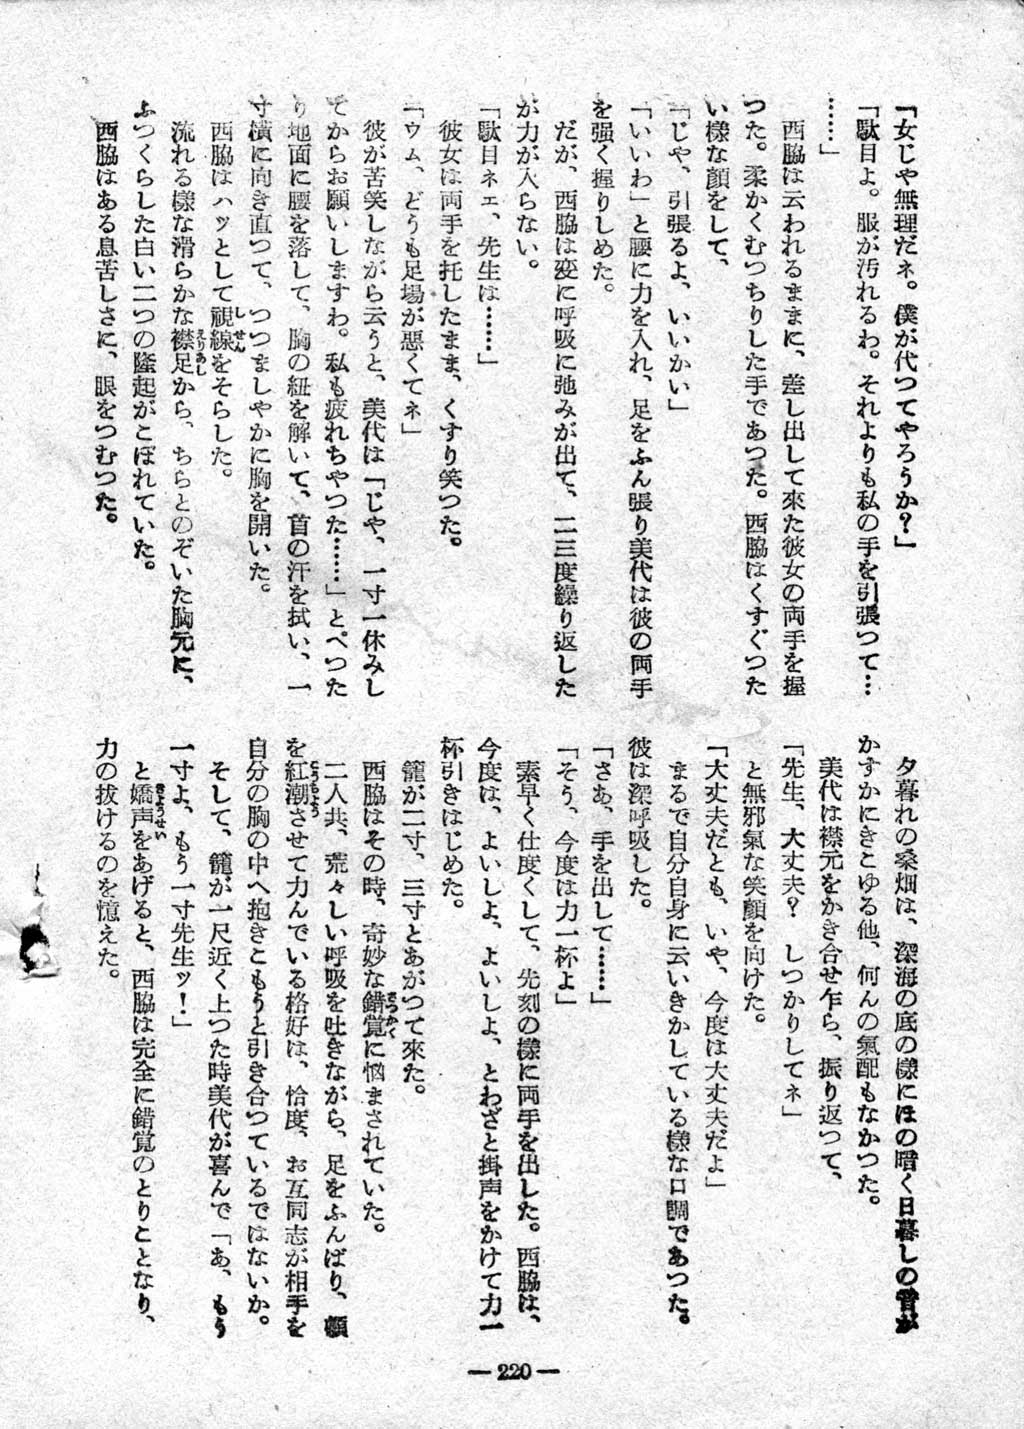 「女じや無理だネ。僕が代つてやろうか？」
「駄目よ。服が汚れるわ。それよりも私の手を引張つて…
……」
西脇は云われるままに、差し出して來た彼女の両手を握
つた。柔かくむつちりした手であつた。西脇はくすぐつた
い様な顔をして、
「じや、引張るよ、いいかい」
「いいわ」と腰に力を入れ、足をふん張り美代は彼の両手
を强く握りしめた。
だが、西脇は変に呼吸に弛みが出て、二三度繰り返した
が力が入らない。
「駄目ネェ、先生は……」
彼女は両手を托したまま、くすり笑つた。
「ウム、どうも足場が悪くてネ」
彼が苦笑しながら云うと、美代は「じや、一寸一休みし
てからお願いしますわ。私も疲れちやつた……」とペつた
り地面に腰を落して、胸の紐を解いて、首の汗を拭い、一
寸横に向き直つて、つつましやかに胸を開いた。
西脇はハッとして視線をそらした。
流れる様な滑らかな襟足から、ちらとのぞいた胸元に、
ふつくらした白い二つの隆起がこぼれていた。
西脇はある息苦しさに、眼をつむつた。
夕暮れの桑畑は、深海の底の様にほの暗く日暮しの音が
かすかにきこゆる他、何んの氣配もなかつた。
美代は襟元をかき合せ乍ら、振り返つて、
「先生、大丈夫？　しつかりしてネ」
と無邪氣な笑顔を向けた。
「大丈夫だとも、いや、今度は大丈夫だよ」
まるで自分自身に云いきかしている様な口調であつた。
彼は深呼吸した。
「さあ、手を出して……」
「そう、今度は力一杯よ」
素早く仕度くして、先刻の様に両手を出した。西脇は、
今度は、よいしよ、よいしよ、とわざと掛声をかけて力一
杯引きはじめた。
籠が二寸、三寸とあがつて來た。
西脇はその時、奇妙な錯覚に悩まされていた。
二人共、荒々しい呼吸を吐きながら、足をふんばり、顔
を紅潮させて力んでいる格好は、恰度、お互同志が相手を
自分の胸の中へ抱きこもうと引き合つているではないか。
そして、籠が一尺近く上つた時美代が喜んで「あ、もう
一寸よ、もう一寸先生ッ！」
と嬌声をあげると、西脇は完全に錯覚のとりことなり、
力の拔けるのを憶えた。
— 220 —